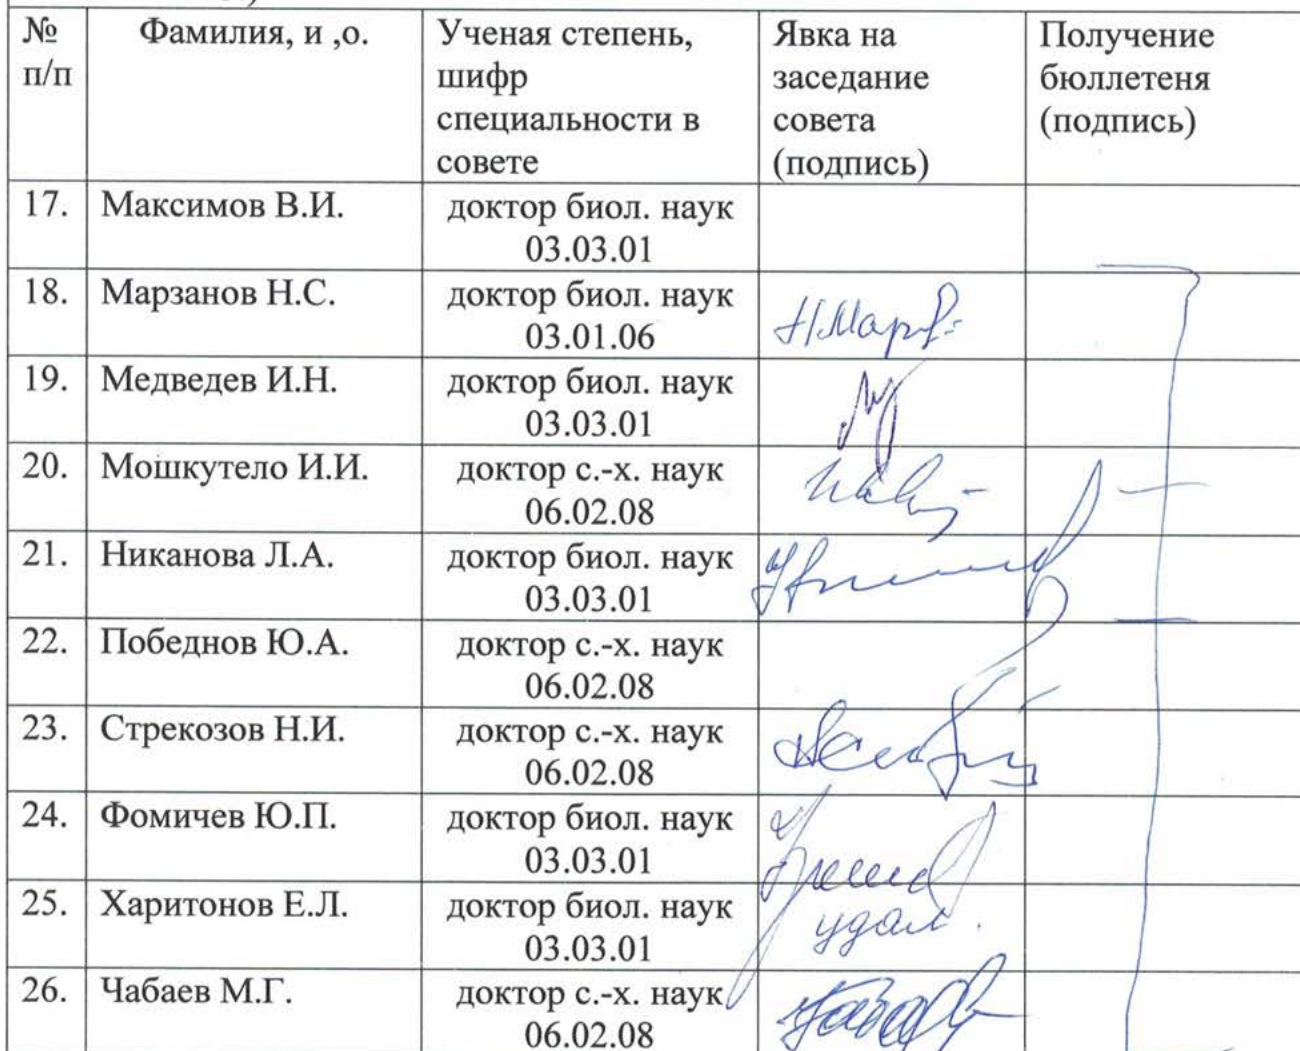 № Фамилия, и ,о. Ученая степень, Явка на Получение
п/п шифр заседание бюллетеня
специальности в совета (подпись)
совете (подпись)
17. Максимов В.И. доктор биол. наук
03.03.01
18. Марзанов Н.С. доктор биол. наук
03.01.06
19. Медведев И.Н. доктор биол. наук
03.03.01
20. Мошкутело И.И. доктор с.-х. наук
06.02.08
21. Никанова Л.А. доктор биол. наук
03.03.01
22. Победнов Ю.А. доктор с.-х. наук
06.02.08
23. Стрекозов Н.И. доктор с.-х. наук
06.02.08
24. Фомичев Ю.П. доктор биол. наук
03.03.01
25. Харитонов Е.Л. доктор биол. наук удал.
03.03.01
26. Чабаев М.Г. доктор с.-х. наук
06.02.08